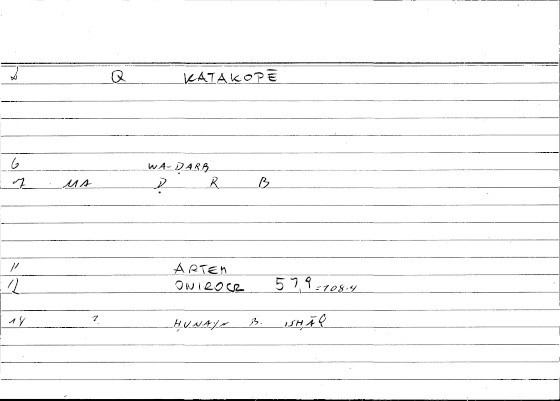 Q KATAKOPĒ
6 WA-ḌARB
7 MA Ḍ R B
11 ARTEM
12 ONIROCR 57,9 = 108.4
14 2 ḤUNAYN B. ISḤĀQ